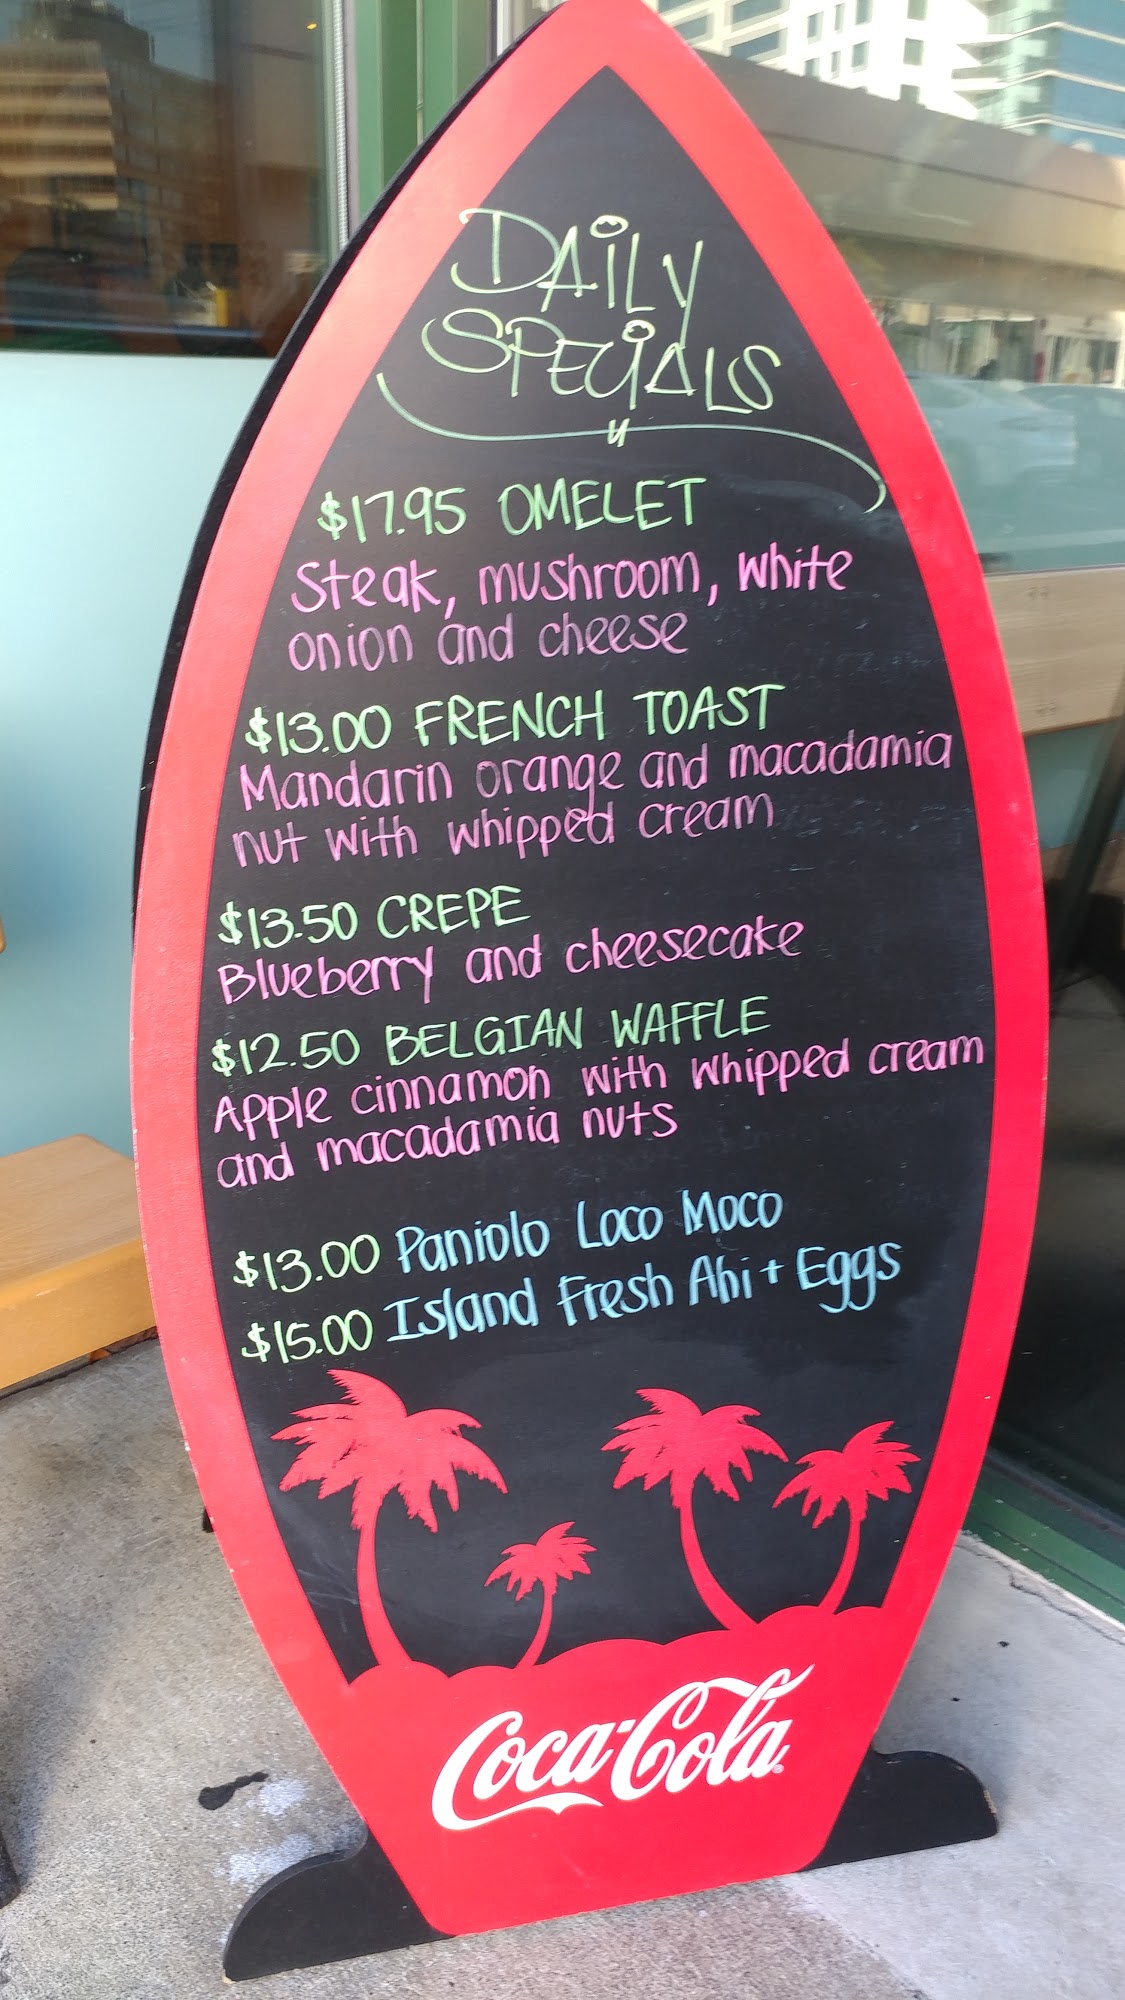 DAILY
SPECIALS
$17.95 OMELET
Steak, mushroom, white
onion and cheese
$13.00 FRENCH TOAST
Mandarin orange and macadamia
nut with whipped cream
$13.50 CREPE
Blueberry and cheesecake
$12.50 BELGIAN WAFFLE
Apple cinnamon with whipped cream
and macadamia nuts
$13.00 Paniolo Loco Moco
$15.00 Island Fresh Ahi + Eggs
Coca-Cola®